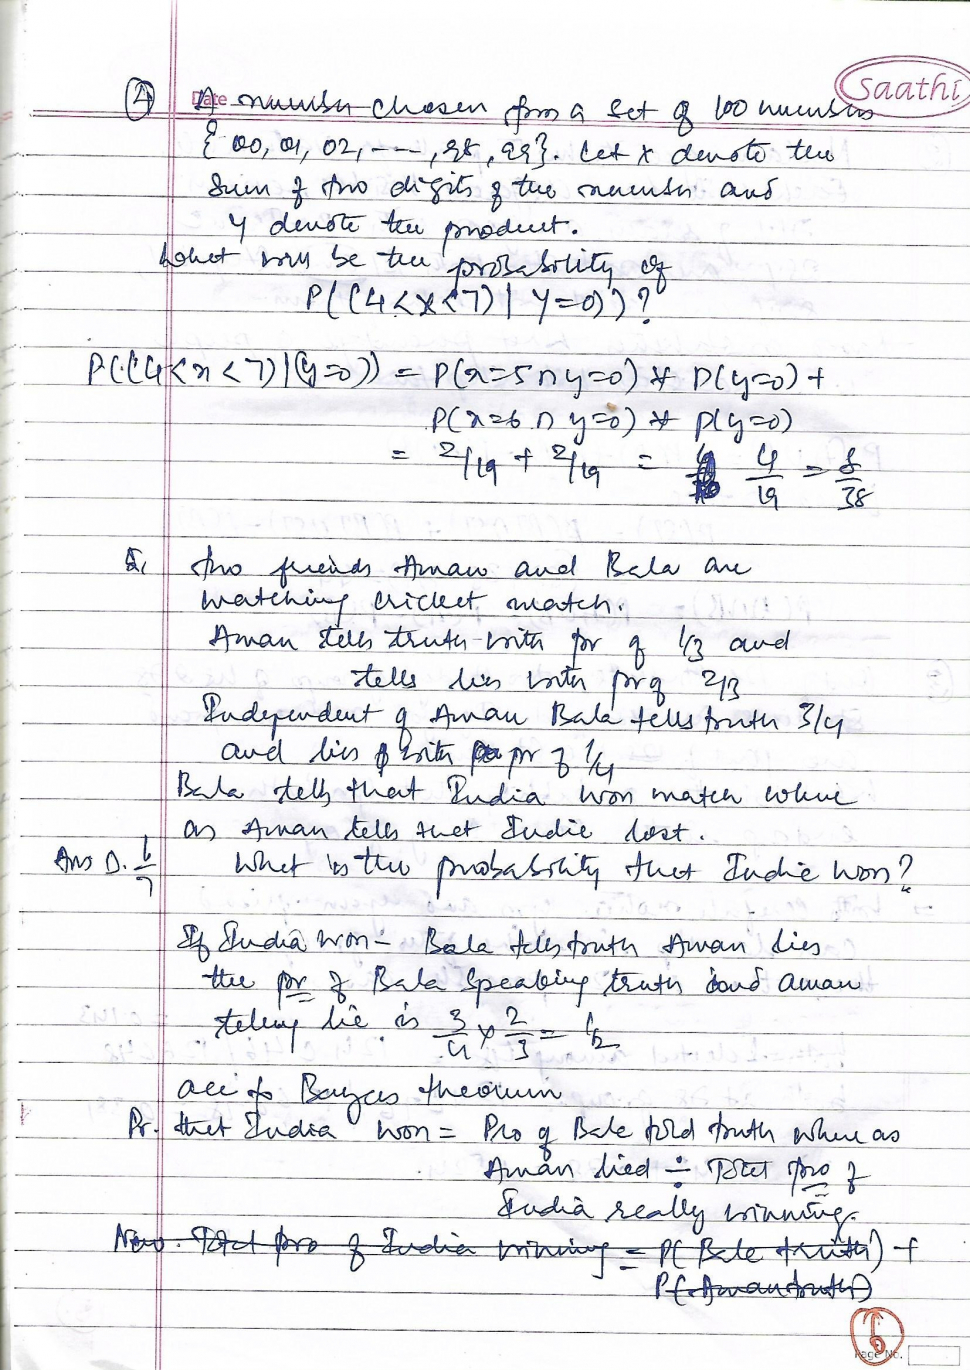 Saathi
Date
④ A number chosen from a set of 100 numbers
{00, 01, 02, ---, 98, 99}. Let x denote the
sum of two digits of the number and
y denote the product.
What will be the probability of
P((4<x<7) | y=0))?
P((4<x<7)|(y=0)) = P(x=5 ∩ y=0) * P(y=0) +
P(x=6 ∩ y=0) * P(y=0)
= 2/19 + 2/19 = 4/19 = 8/38
5. two friends Aman and Bala are
watching cricket match.
Aman tells truth with pr of 1/3 and
tells lies with pr of 2/3
Independent of Aman Bala tells truth 3/4
and lies with pr of 1/4
Bala tells that India won match where
as Aman tells that India lost.
Ans D. 6/7 What is the probability that India won?
If India won - Bala tells truth Aman lies
the pr of Bala speaking truth and aman
telling lie is 3/4 x 2/3 = 1/2
acc to Bayes theorum
Pr. that India won = Pro of Bala told truth where as
Aman lied ÷ Total pro of
India really winning.
Now. Total pro of India winning = P(Bala truth) +
P(Aman truth)
6
Page No.